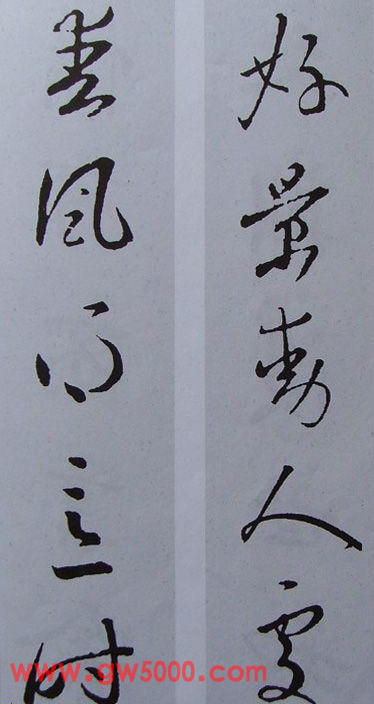 好景動人處
春風得意時
www.gw5000.com